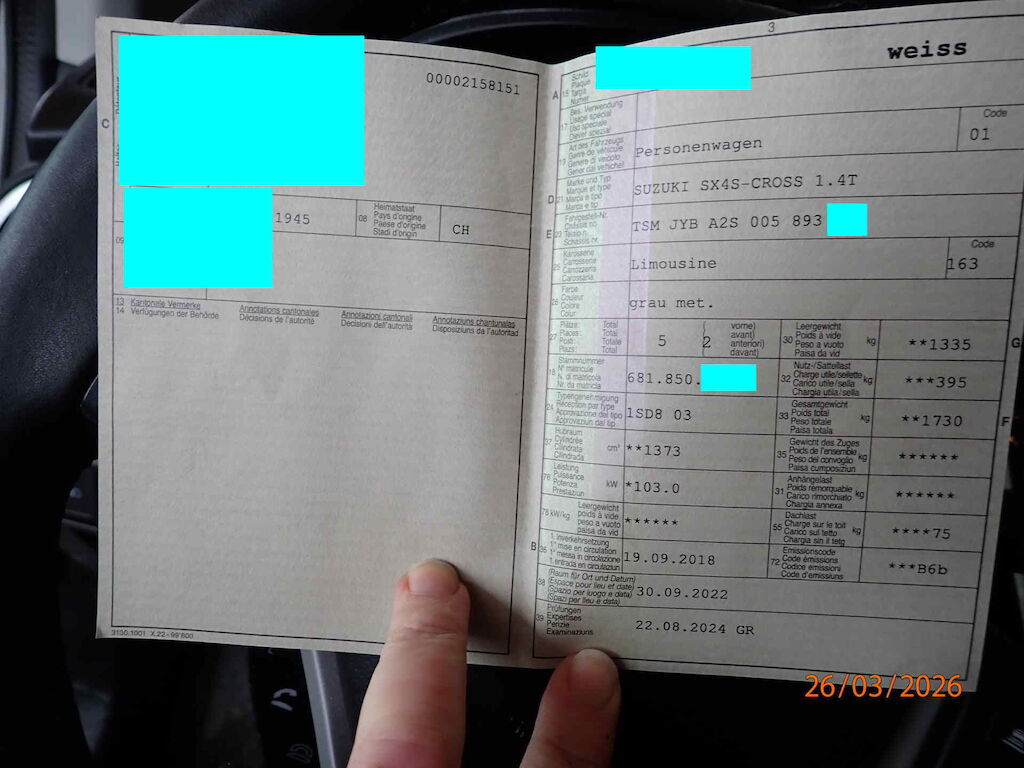 00002158151
C
1945
08 Heimatstaat
Pays d'origine
Paese d'origine
Stadi d'origin
CH
09
13 Kantonale Vermerke
14 Verfügungen der Behörde
Annotations cantonales
Décisions de l'autorité
Annotazioni cantonali
Decisioni dell'autorità
Annotaziuns chantunalas
Disposiziuns da l'autoritad
3130.1001 X.22
3
weiss
A 15 Schild
Plaque
Targa
Numer
17 Bes. Verwendung
Usage spécial
Uso speciale
Diever spezial
19 Art des Fahrzeugs
Genre de véhicule
Genere di veicolo
Gener dal vehichel
Personenwagen
Code
01
D 21 Marke und Typ
Marque et type
Marca e tipo
Marca e tip
SUZUKI SX4S-CROSS 1.4T
E 23 Fahrgestell-Nr.
Châssis no
Telaio n.
Schassis nr.
TSM JYB A2S 005 893
25 Karosserie
Carrosserie
Carrozzeria
Carossaria
Limousine
Code
163
26 Farbe
Couleur
Colore
Colur
grau met.
27 Plätze: Total
Places: Total
Posti: Totale
Plazs: Total
5
2
vorne)
avant)
anteriori)
davant)
30 Leergewicht
Poids à vide
Peso a vuoto
Paisa da vid
kg
**1335
G
18 Stammnummer
N° matricule
N. di matricola
Nr. da matricla
681.850.
32 Nutz-/Sattellast
Charge utile/sellette
Carico utile/sella
Chargia utila/sella
kg
***395
24 Typengenehmigung
Réception par type
Approvazione del tipo
Approvaziun dal tip
1SD8 03
33 Gesamtgewicht
Poids total
Peso totale
Paisa totala
kg
**1730
F
37 Hubraum
Cylindrée
Cilindrata
Cilindrada
cm³
**1373
35 Gewicht des Zuges
Poids de l'ensemble
Peso del convoglio
Paisa cumposiziun
kg
******
76 Leistung
Puissance
Potenza
Prestaziun
kW
*103.0
31 Anhängelast
Poids remorquable
Carico rimorchiato
Chargia annexa
kg
******
78 kW/kg
Leergewicht
poids à vide
peso a vuoto
paisa da vid
******
55 Dachlast
Charge sur le toit
Carico sul tetto
Chargia sin il tetg
kg
****75
B 36 1. Inverkehrsetzung
1re mise en circulation
1a messa in circolazione
1. entrada en circulaziun
19.09.2018
72 Emissionscode
Code émissions
Codice emissioni
Code d'emissiuns
***B6b
38 (Raum für Ort und Datum)
(Espace pour lieu et date)
(Spazio per luogo e data)
(Spazi per lieu e data)
30.09.2022
39 Prüfungen
Expertises
Perizie
Examinaziuns
22.08.2024 GR
26/03/2026